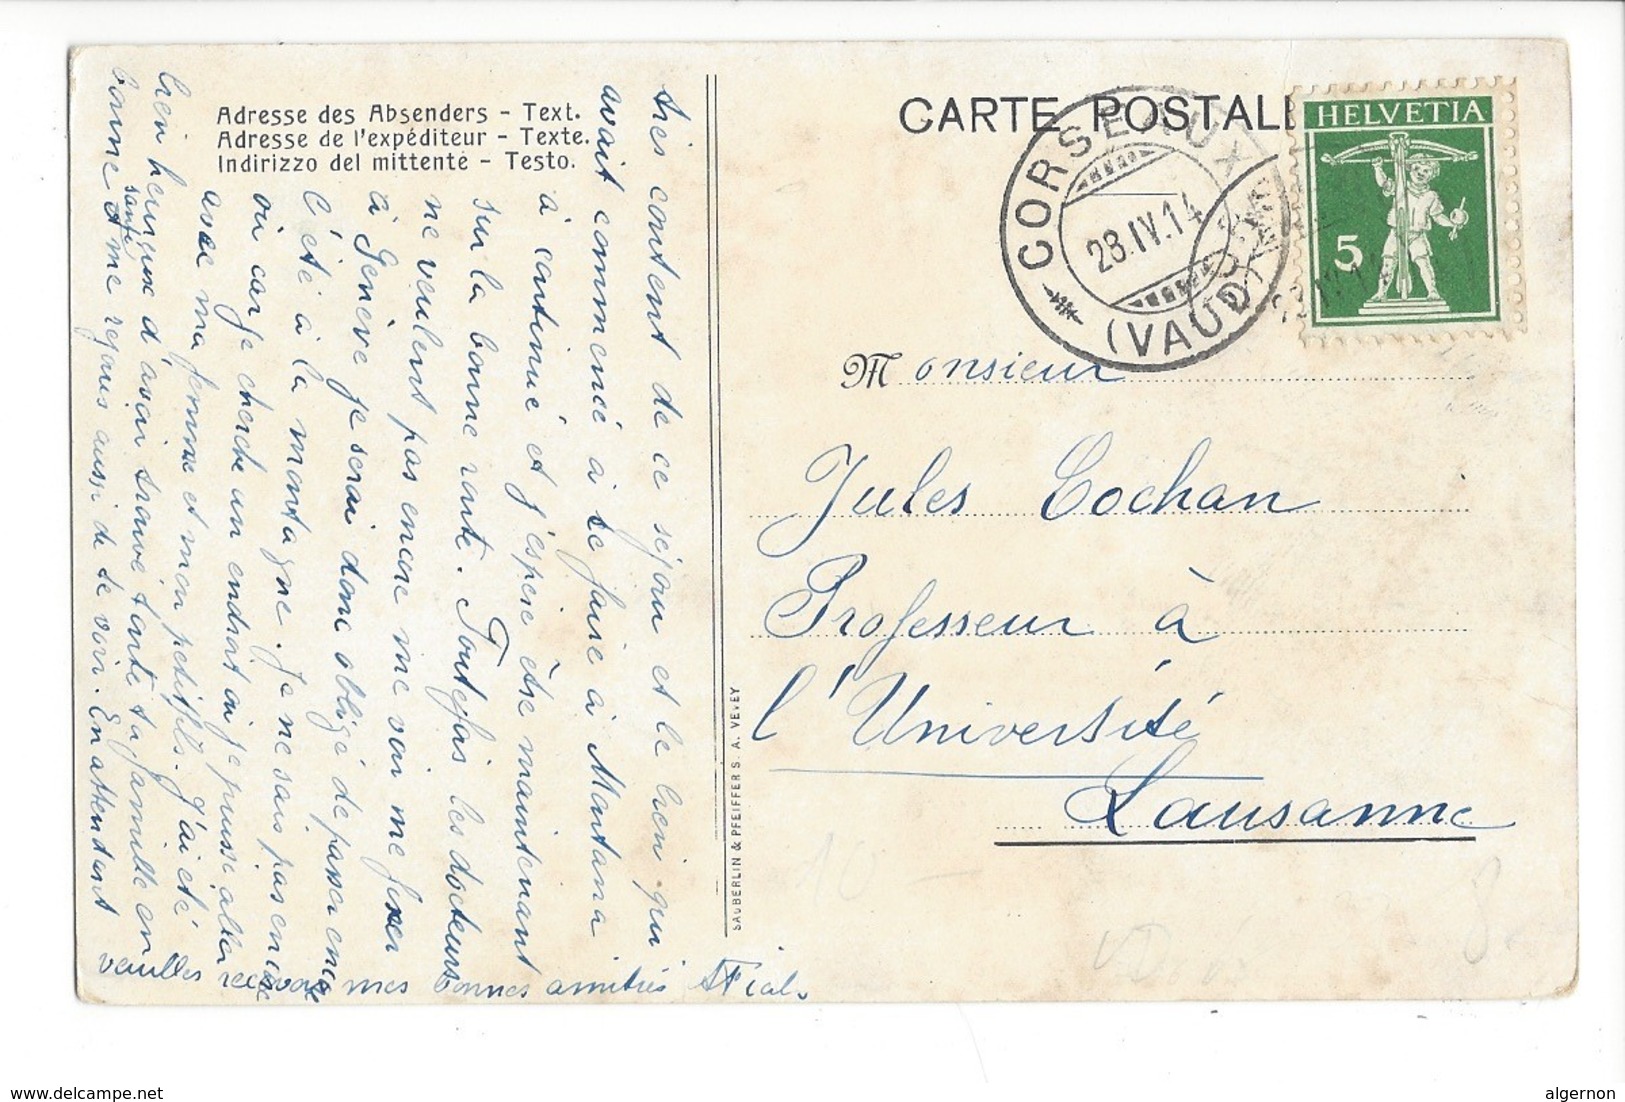 Adresse des Absenders - Text.
Adresse de l'expéditeur - Texte.
Indirizzo del mittente - Testo.
très content de ce séjour et le bien qui
avait commencé à se faire à Montana
a continué et j'espère être maintenant
sur la bonne route. Toutefois les docteurs
ne veulent pas encore me voir me fixer
à Genève je serai donc obligé de passer encore
l'été à la montagne. Je ne sais pas encore
où car je cherche un endroit où je puisse aller
avec ma femme et mon petit fils. J'ai été
bien heureux d'avoir trouvé toute ta famille en
bonne santé et me rejouis aussi de te voir. En attendant
veuilles recevoir mes bonnes amitiés
CARTE POSTALE
CORSEAUX
28.IV.14
(VAUD)
HELVETIA
5
Monsieur
Jules Cochan
Professeur à
l'Université
Lausanne
SÄUBERLIN & PFEIFFER S. A. VEVEY
10
8
www.delcampe.net
algernon